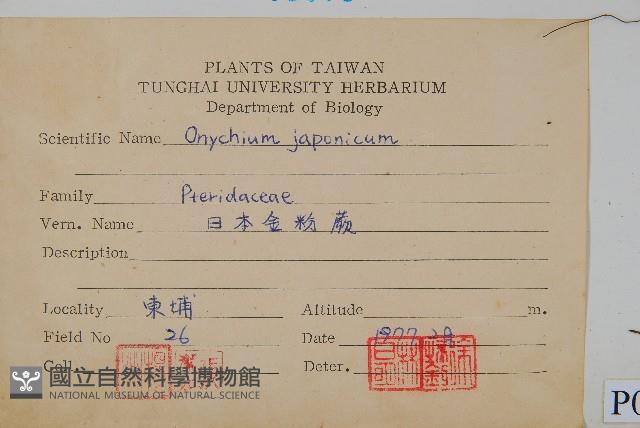 PLANTS OF TAIWAN
TUNGHAI UNIVERSITY HERBARIUM
Department of Biology
Scientific Name Onychium japonicum
Family Pteridaceae
Vern. Name 日本金粉蕨
Description
Locality 東埔 Altitude m.
Field No 26 Date 1977
Coll. Deter.
國立自然科學博物館
NATIONAL MUSEUM OF NATURAL SCIENCE
P0